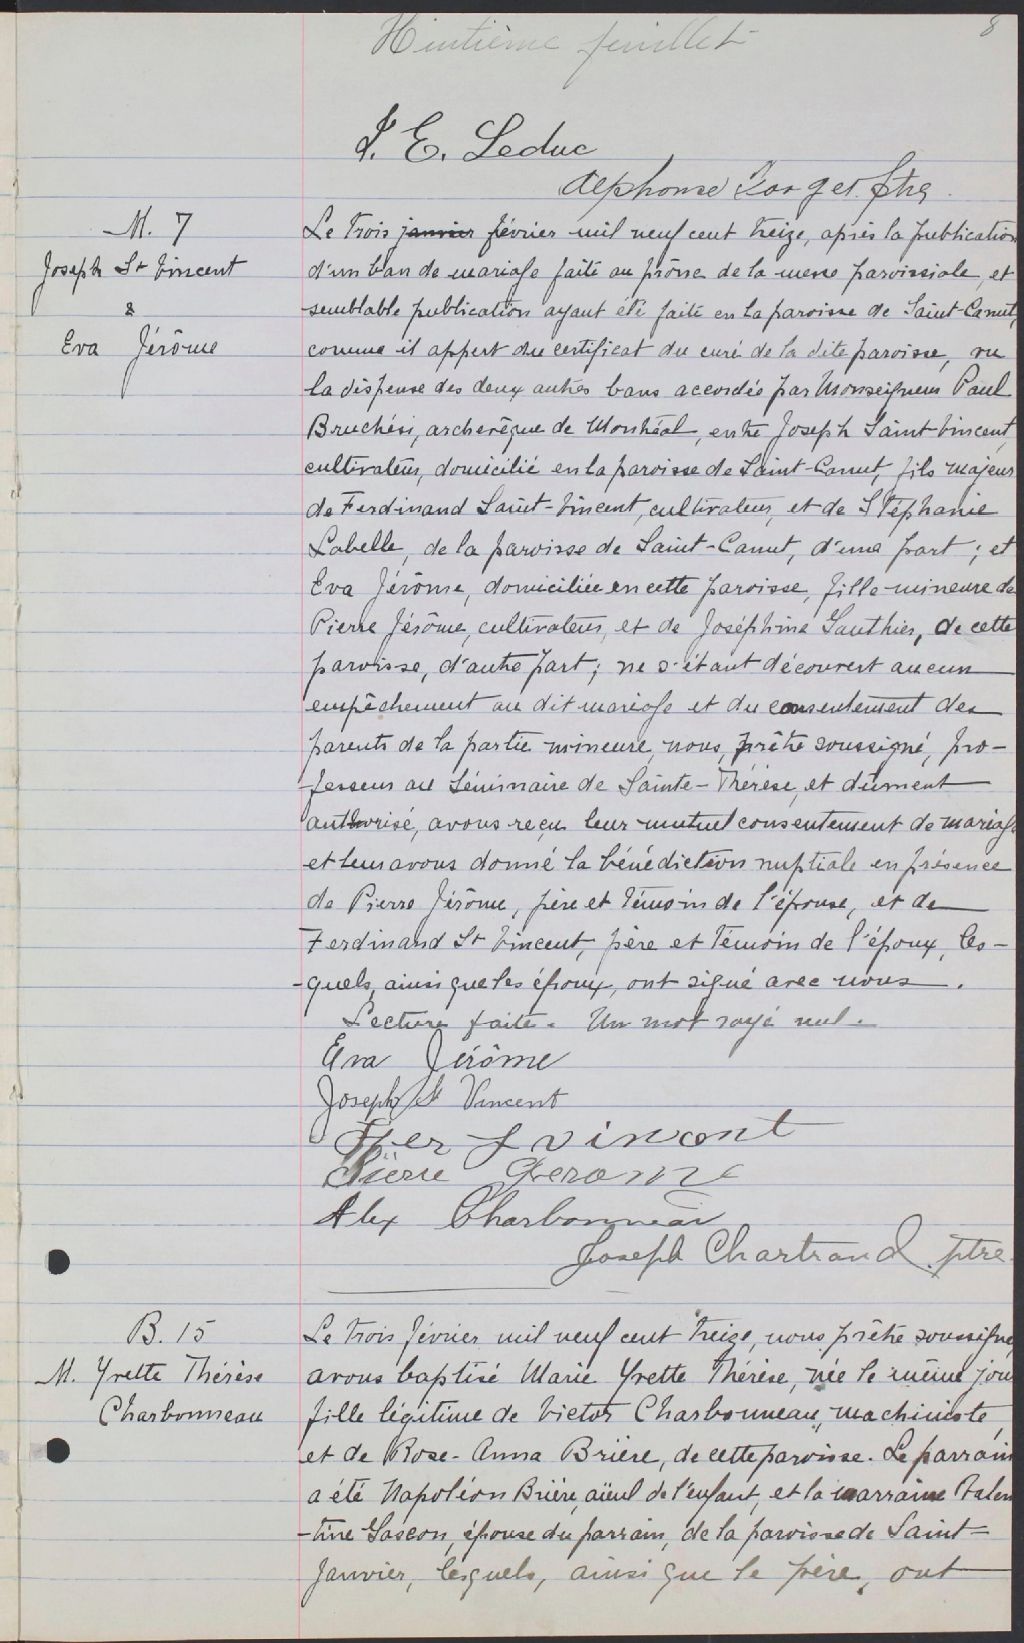 Huitième feuillet
8
J. E. Leduc
Alphonse Forget ptre
M. 7
Joseph St Vincent
&
Eva Jérôme
Le trois janvier février mil neuf cent treize, après la publication
d'un ban de mariage faite au prône de la messe paroissiale, et
semblable publication ayant été faite en la paroisse de Saint-Canut,
comme il appert du certificat du curé de la dite paroisse, vu
la dispense des deux autres bans accordée par Monseigneur Paul
Bruchési, archevêque de Montréal, entre Joseph Saint-Vincent,
cultivateur, domicilié en la paroisse de Saint-Canut, fils majeur
de Ferdinand Saint-Vincent, cultivateur, et de Stéphanie
Labelle, de la paroisse de Saint-Canut, d'une part; et
Eva Jérôme, domiciliée en cette paroisse, fille mineure de
Pierre Jérôme, cultivateur, et de Joséphine Gauthier, de cette
paroisse, d'autre part; ne s'étant découvert aucun
empêchement au dit mariage et du consentement des
parents de la partie mineure, nous, prêtre soussigné, pro-
fesseur au Séminaire de Sainte-Thérèse, et dûment
authorisé, avons reçu leur mutuel consentement de mariage
et leur avons donné la bénédiction nuptiale en présence
de Pierre Jérôme, père et témoin de l'épouse, et de
Ferdinand St Vincent, père et témoin de l'époux, les-
-quels, ainsi que les époux, ont signé avec nous.
Lecture faite. Un mot rayé nul.
Eva Jérôme
Joseph St Vincent
Fer St vincent
Pierre Gerome
Alex Charbonneau
Joseph Chartrand ptre.
B. 15
M. Yvette Thérèse
Charbonneau
Le trois février mil neuf cent treize, nous prêtre soussigné
avons baptisé Marie Yvette Thérèse, née le même jour
fille légitime de Victor Charbonneau, machiniste,
et de Rose-Anna Brière, de cette paroisse. Le parrain
a été Napoléon Brière, aïeul de l'enfant, et la marraine Valen
-tine Gascon, épouse du parrain, de la paroisse de Saint-
Janvier, lesquels, ainsi que le père, ont